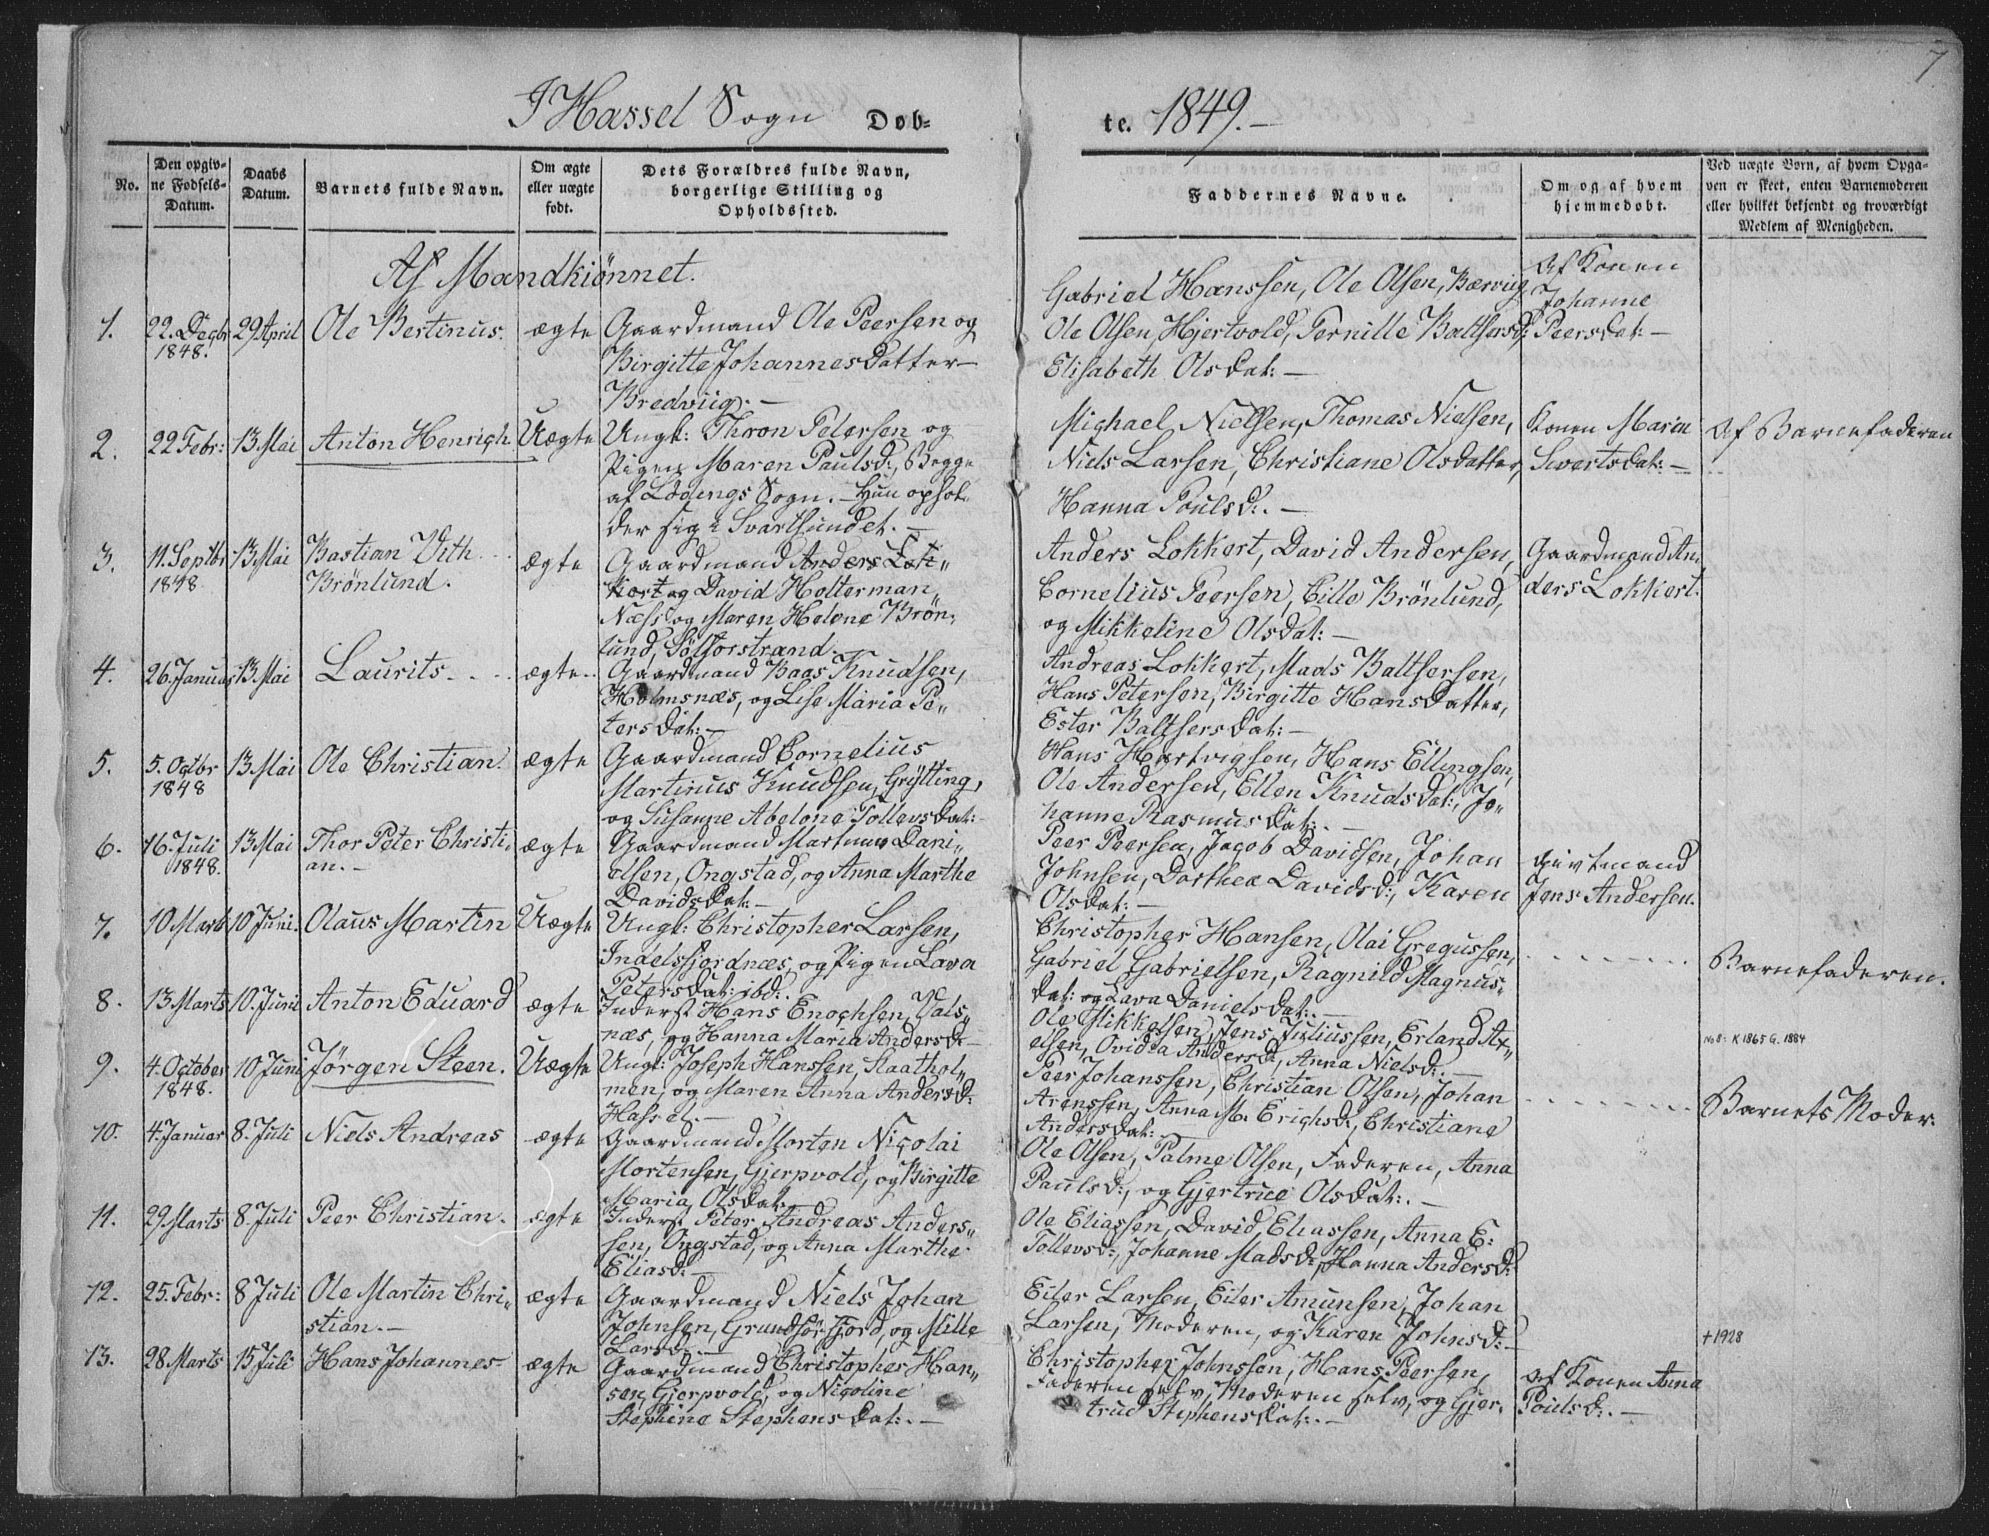 7
I Hassel Sogn Døb-
te. 1849.-
No.
Den opgiv-
ne Fødsels-
Datum.
Daabs
Datum.
Barnets fulde Navn.
Om ægte
eller uægte
født.
Dets Forældres fulde Navn,
borgerlige Stilling og
Opholdssted.
Faddernes Navne.
Om og af hvem
hjemmedøbt.
Ved uægte Børn, af hvem Opga-
ven er skeet, enten Barnemoderen
eller hvilket bekjendt og troværdigt
Medlem af Menigheden.
Af Mandkiønnet.
1.
22. Decbr
1848.
29 April
Ole Bertinus.
ægte
Gaardmand Ole Peersen og
Birgitte Johannesdatter-
Bredviig.-
Gabriel Hanssen, Ole Olsen,
Ole Olsen, Hjertvold, Pernille Baltsersd:
Elisabeth Olsdat:-
Af Konen
Johanne
Peersdat:-
2.
22 Febr:
13 Mai
Anton Henrich
Uægte
Ungk: Thron Petersen og
Pigen Maren Paulsd:, Begge
af Sogn.- Hun ophol-
der sig i Svartsundet.-
Michael Nielsen, Thomas Nielsen,
Niels Larsen, Christiane Olsdatter,
Hanna Poulsd:.-
Konen Maren
Swertsdat:-
Af Barnefaderen
3.
11. Septbr
1848.
13 Mai
Bastian Vith
Brönlund.
ægte
Gaardmand Anders Lok-
kert og David Holterman
Næss og Maren Helene Brön-
lund,
Anders Lokkert, David Andersen,
Cornelius Peersen, Cille Brönlund,
og Mikkeline Olsdat:-
Gaardmand An-
ders Lokkert.
4.
26. Januar
13 Mai
Laurits.
ægte
Gaardmand Baas Knudsen,
Holmsnæs, og Lise Maria Pe-
tersdat:-
Andreas Lokkert, Mads Baltsersen,
Hans Petersen, Birgitte Hansdatter,
Ester Baltsersdat:-
5.
5. Octbr
1848
13 Mai
Ole Christian.
ægte
Gaardmand Cornelius
Martinus Knudsen, Grÿtting,
og Susanne Abelone Tollevsdat:
Hans Hartvigsen, Hans Ellingsen,
Ole Andersen, Ellen Knudsdat:, Jo-
hanne Rasmusdat:.-
6.
16. Juli
1848.
13 Mai
Thor Peter Christi-
an.-
ægte
Gaardmand Martinus Dani-
elsen, Ongstad, og Anna Marthe
Davidsdat:-
Peer Peersen, Jacob Davidsen, Johan
Johnsen, Dorthea Davidsd:, Karen
Olsdat:-
Givtmand
Jens Andersen.
7.
10 Marts
10 Juni.
Olaus Martin
Uægte
Ungk: Christopher Larsen,
Indelsfjordnæs, og Pigen Lava
Petersdat: ibd:.
Christopher Hansen, Olai Gregussen,
Gabriel Gabrielsen, Ragnild Magnus-
dat: og Lava Danielsdat:.-
Barnefaderen.
8.
13 Marts
10. Juni
Anton Eduard
ægte
Inderst Hans Enochsen, Vals-
næs, og Hanna Maria Andersd:-
Ole Mikkelsen, Jens Juliussen, Erland Ax-
elsen, Ovidia Andersd:, Anna Nielsd:.-
No 8: K 1865 G. 1884
9.
4. October
1848.
10 Juni
Jörgen Steen.
Uægte
Ungk: Joseph Hanssen, Kaathol-
men, og Maren Anna Andersd:
Hassel.-
Peer Johanssen, Christian Olsen, Johan
Arenssen, Anna M. Erichsd:, Christiane
Andersdat:
Barnets Moder.
10.
4. Januar
8. Juli
Niels Andreas
ægte
Gaardmand Morten Nicolai
Mortensen, Gjerpvold, og Birgitte
Maria, Olsdat.
Ole Olsen, Palme Olsen, Faderen, Anna
Paulsd:, og Gjertrue Olsdat:.-
11.
29 Marts
8. Juli
Peer Christian.
ægte
Inderst Peter Andreas Anders-
sen, Ongstad, og Anna Marthe
Eliasd:-
Ole Eliassen, David Eliassen, Anna E:
Tollevsd:, Johanne Madsd:, Hanna Andersd:
12.
25. Febr:
8 Juli
Ole Martin Chri-
stian.-
ægte
Gaardmand Niels Johan
Johnsen, Grundförfjord, og Mille
Larsd:.-
Eiler Larsen, Eiler Amunsen, Johan
Larsen, Moderen, og Karen Johnsd:-
+1928
13.
28. Marts
15 Juli
Hans Johannes
ægte
Gaardmand Christopher Han-
sen, Gjerpvold, og Nicoline
Stephine Stephensdat:.-
Christopher Johnssen, Hans Peersen,
Faderen selv, Moderen selv, og Gjer-
trud Stephensdat:.-
af Konen Anna
Poulsd:.-